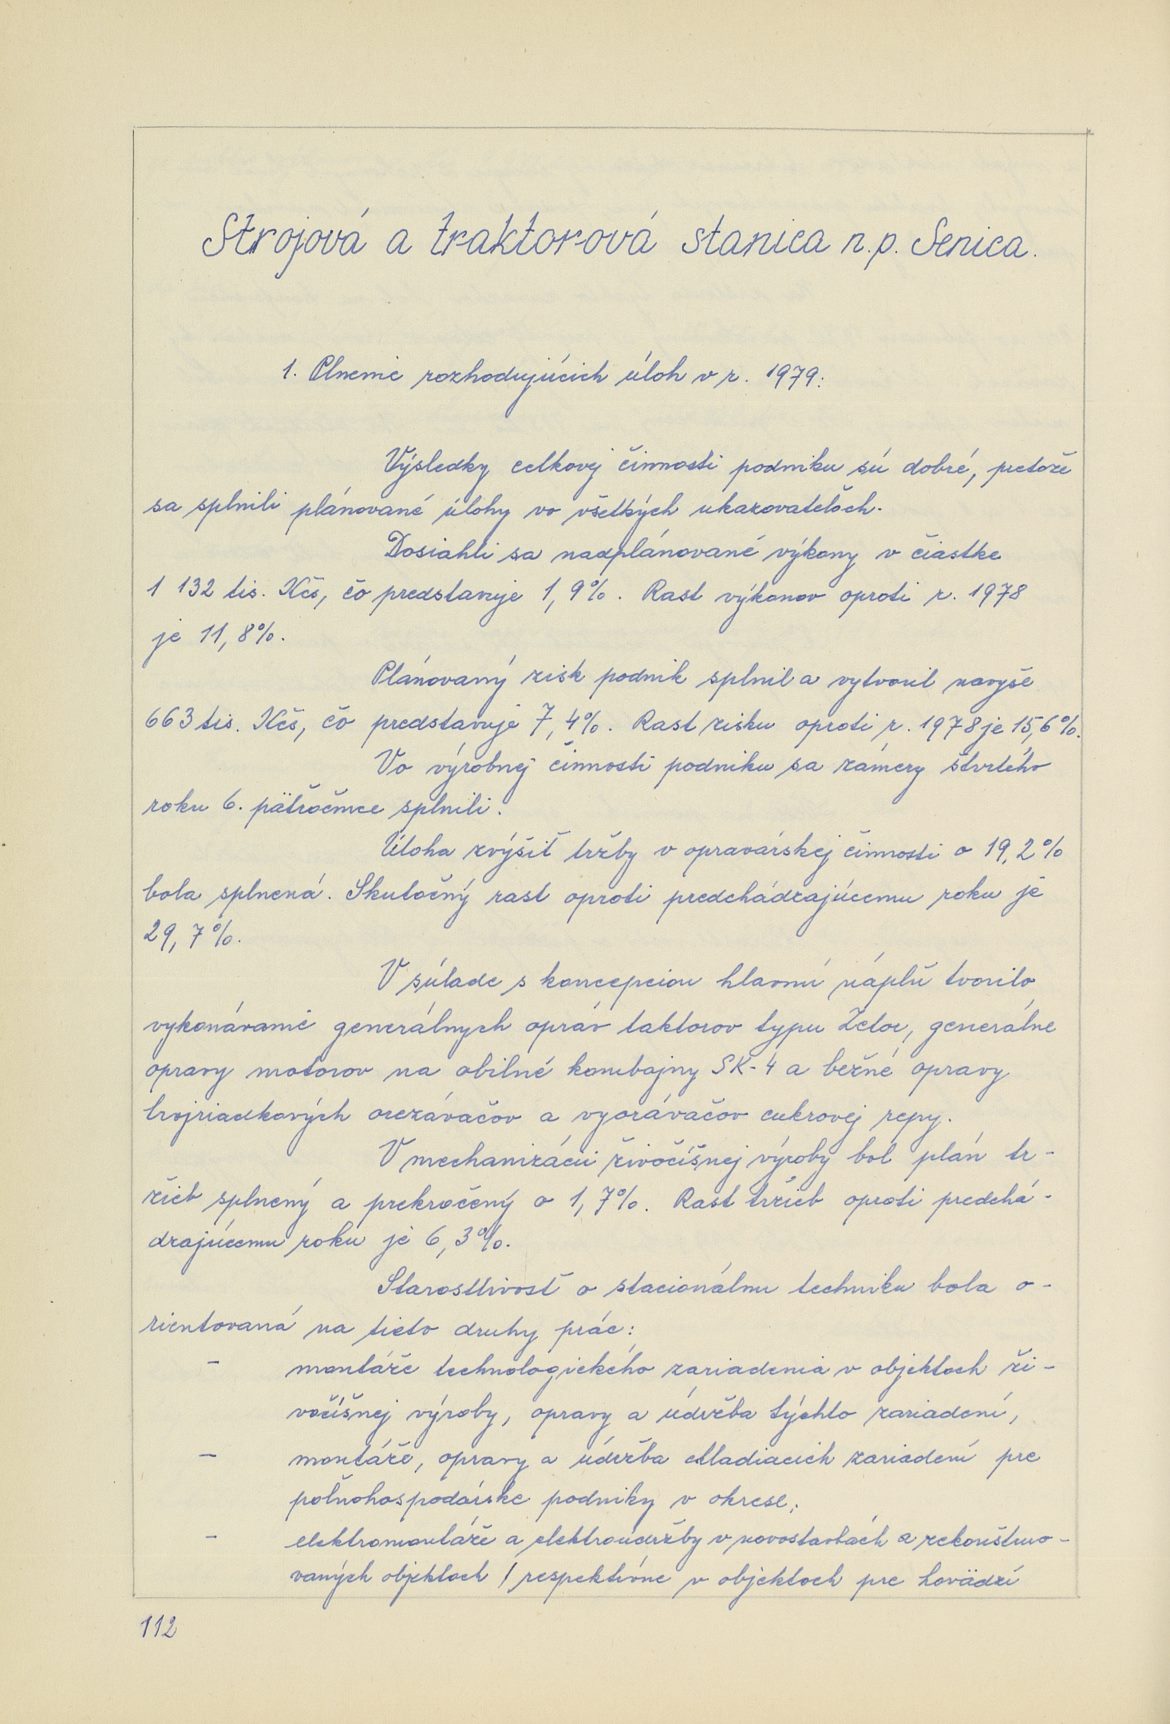 Strojová a traktorová stanica n.p. Senica.
1. Plnenie rozhodujúcich úloh v r. 1979:
Výsledky celkovej činnosti podniku sú dobré, pretože
sa splnili plánované úlohy vo všetkých ukazovateľoch.
Dosiahli sa nadplánované výkony v čiastke
1 132 tis. Kčs, čo predstavuje 1,9%. Rast výkonov oproti r. 1978
je 11,8%.
Plánovaný zisk podnik splnil a vytvoril navyše
663 tis. Kčs, čo predstavuje 7,4%. Rast zisku oproti r. 1978 je 15,6%.
Vo výrobnej činnosti podniku sa zámery štvrtého
roku 6. päťročnice splnili.
Úloha zvýšiť tržby v opravárskej činnosti o 19,2%
bola splnená. Skutočný rast oproti predchádzajúcemu roku je
29,7%.
V súlade s koncepciou hlavnú náplň tvorilo
vykonávanie generálnych opráv taktorov typu Zetor, generálne
opravy motorov na obilné kombajny SK-4 a bežné opravy
trojriadkových orezávačov a vyorávačov cukrovej repy.
V mechanizácii živočíšnej výroby bol plán tr-
žieb splnený a prekročený o 1,7%. Rast tržieb oproti predchá-
dzajúcemu roku je 6,3%.
Starostlivosť o stacionálnu techniku bola o-
rientovaná na tieto druhy prác:
- montáže technologického zariadenia v objektoch ži-
vočíšnej výroby, opravy a údržba týchto zariadení,
- montáže, opravy a údržba chladiacich zariadení pre
poľnohospodárske podniky v okrese,
- elektromontáže a elektroúdržby v novostavbách a rekonštruo-
vaných objektoch / respektívne v objektoch pre hovädzí
112